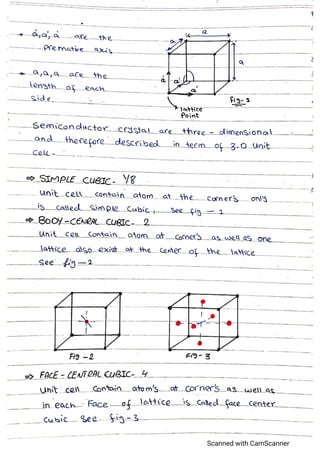 1
→ a⃗, a⃗, a⃗ are the
Premative axis
a
a
a
→ a,a,a are the
length of each
side.
a⃗
a⃗
a⃗
lattice
Point
Fig-1
Semiconductor crystal are three - dimensional
and therefore described in term of 3-D unit
Cell-
⇒ SIMPLE CUBIC- 1/8
Unit cell contain atom at the corner's only
is called simple Cubic, See fig - 1
⇒ BODY-CENRAL CUBIC- 2
Unit Cell Contain atom at corner's as well as one
lattice also exist at the Center of the lattice
See fig-2
Fig -2
Fig- 3
⇒ FACE - CENTERAL CUBIC- 4
Unit cell Contain atom's at corner's as well as
in each Face of lattice is Called face center
Cubic See fig-3
Scanned with CamScanner